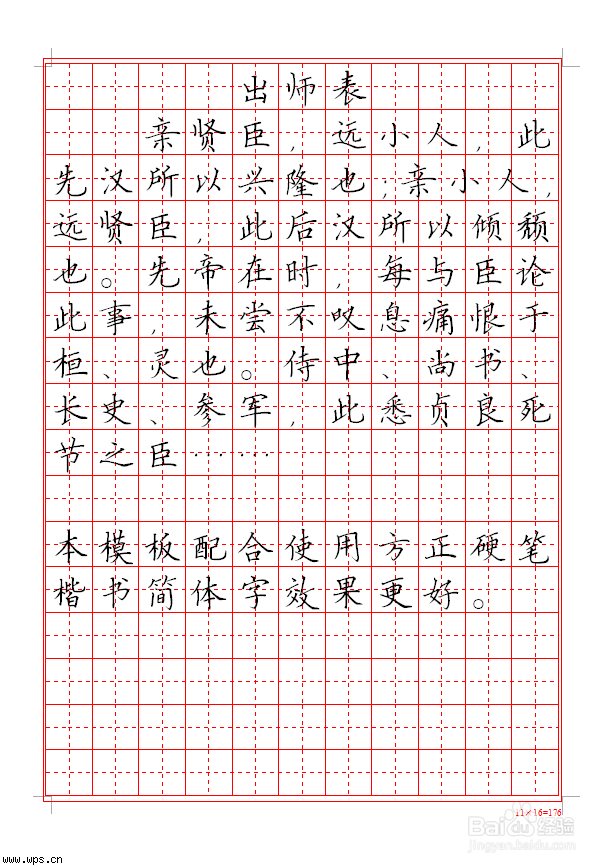 出师表
亲贤臣，远小人，此
先汉所以兴隆也；亲小人，
远贤臣，此后汉所以倾颓
也。先帝在时，每与臣论
此事，未尝不叹息痛恨于
桓、灵也。侍中、尚书、
长史、参军，此悉贞良死
节之臣……
本模板配合使用方正硬笔
楷书简体字效果更好。
11×16=176
Baidu经验
jingyan.baidu.com
www.wps.cn